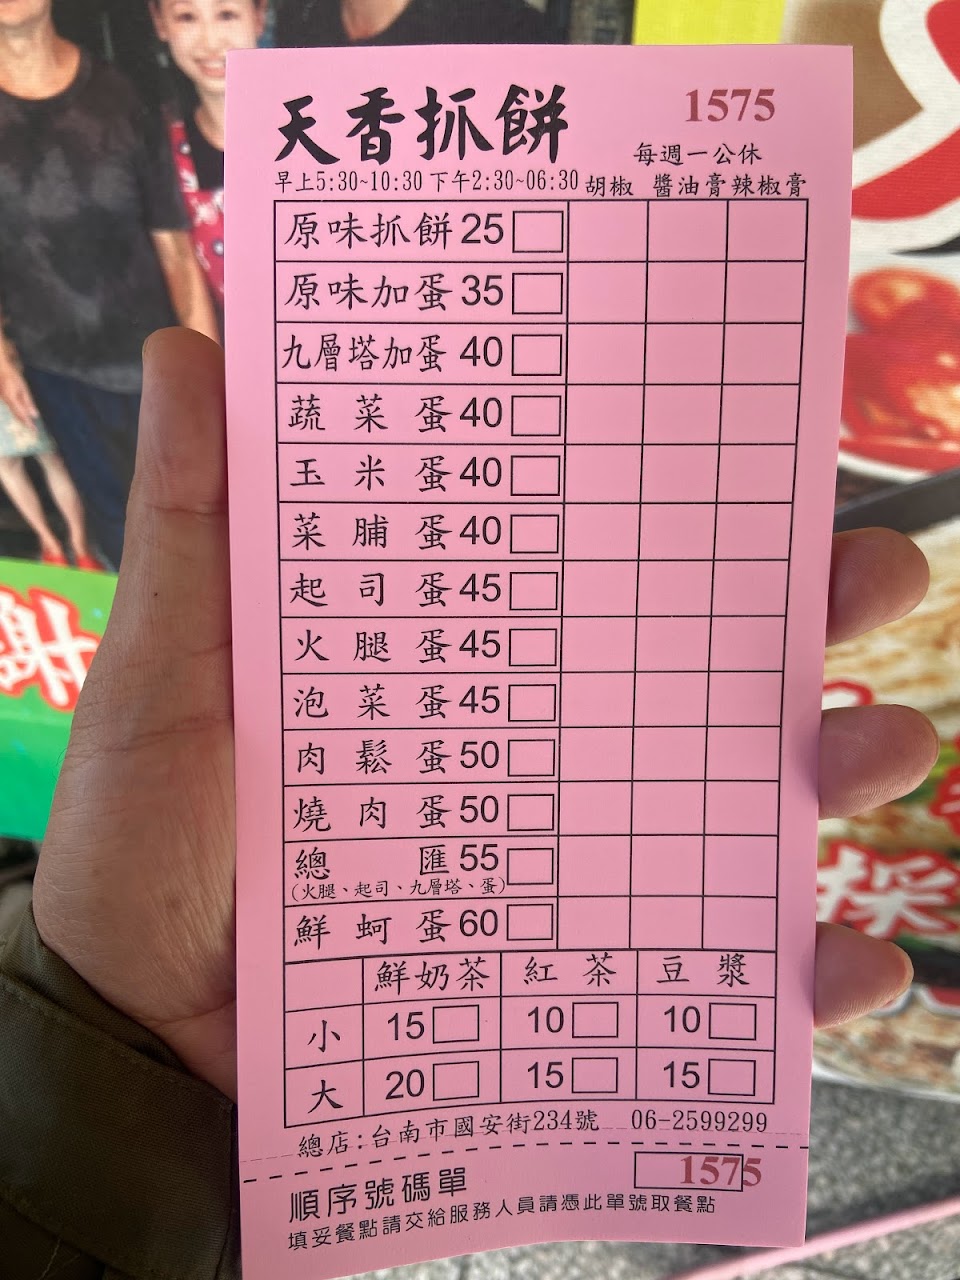 天香抓餅
1575
每週一公休
早上5:30~10:30 下午2:30~06:30 胡椒 醬油膏 辣椒膏
原味抓餅 25
原味加蛋 35
九層塔加蛋 40
蔬菜蛋 40
玉米蛋 40
菜脯蛋 40
起司蛋 45
火腿蛋 45
泡菜蛋 45
肉鬆蛋 50
燒肉蛋 50
總匯 55
(火腿、起司、九層塔、蛋)
鮮蚵蛋 60
鮮奶茶 紅茶 豆漿
小 15 10 10
大 20 15 15
總店:台南市國安街234號 06-2599299
1575
順序號碼單
填妥餐點請交給服務人員請憑此單號取餐點
謝
採